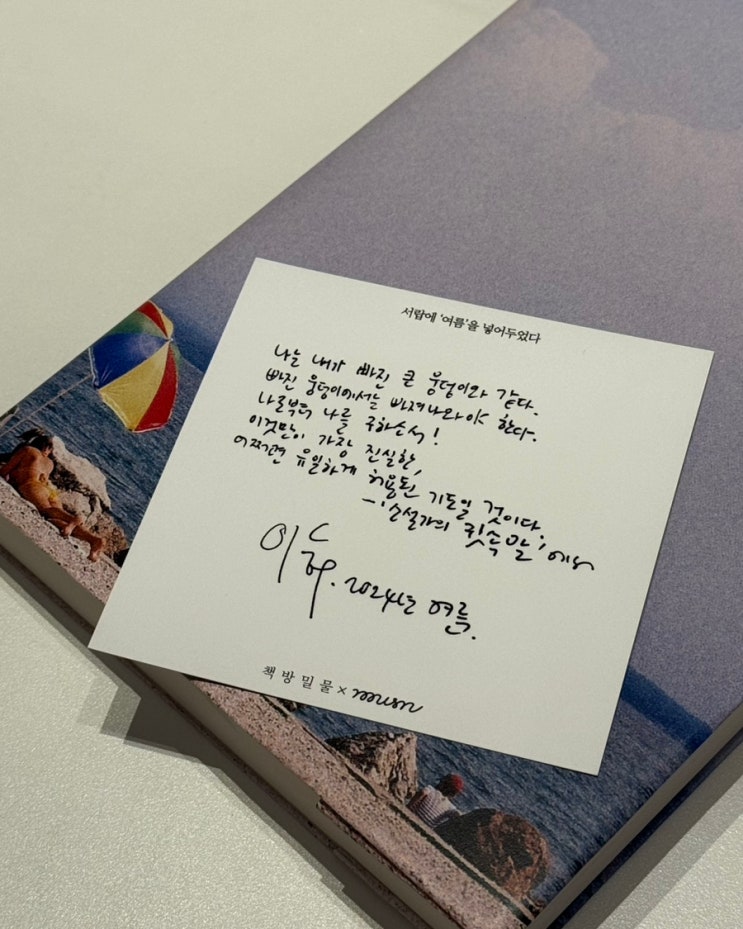 서랍에 '여름'을 넣어두었다
나는 내가 빠진 큰 웅덩이와 같다.
빠진 웅덩이에서는 빠져나와야 한다.
나로부터 나를 구하소서!
이것만이 가장 진실한,
어쩌면 유일하게 허용된 기도일 것이다.
–'소설가의 귓속말'에서
이
2024년 여름.
책방밀물 × mum